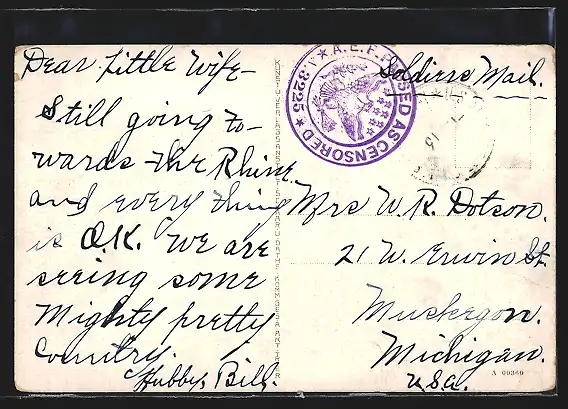 Dear Little Wife-
Still going to-
wards the Rhine
and every thing
is O.K. We are
seeing some
Mighty pretty
Country.
Hubby, Bill.
A.E.F. PASSED AS CENSORED
3225
Soldiers Mail.
Mrs W. R. Dotson.
21 W. Erwin St.
Muskegon.
Michigan.
U.S.A.
A 09360